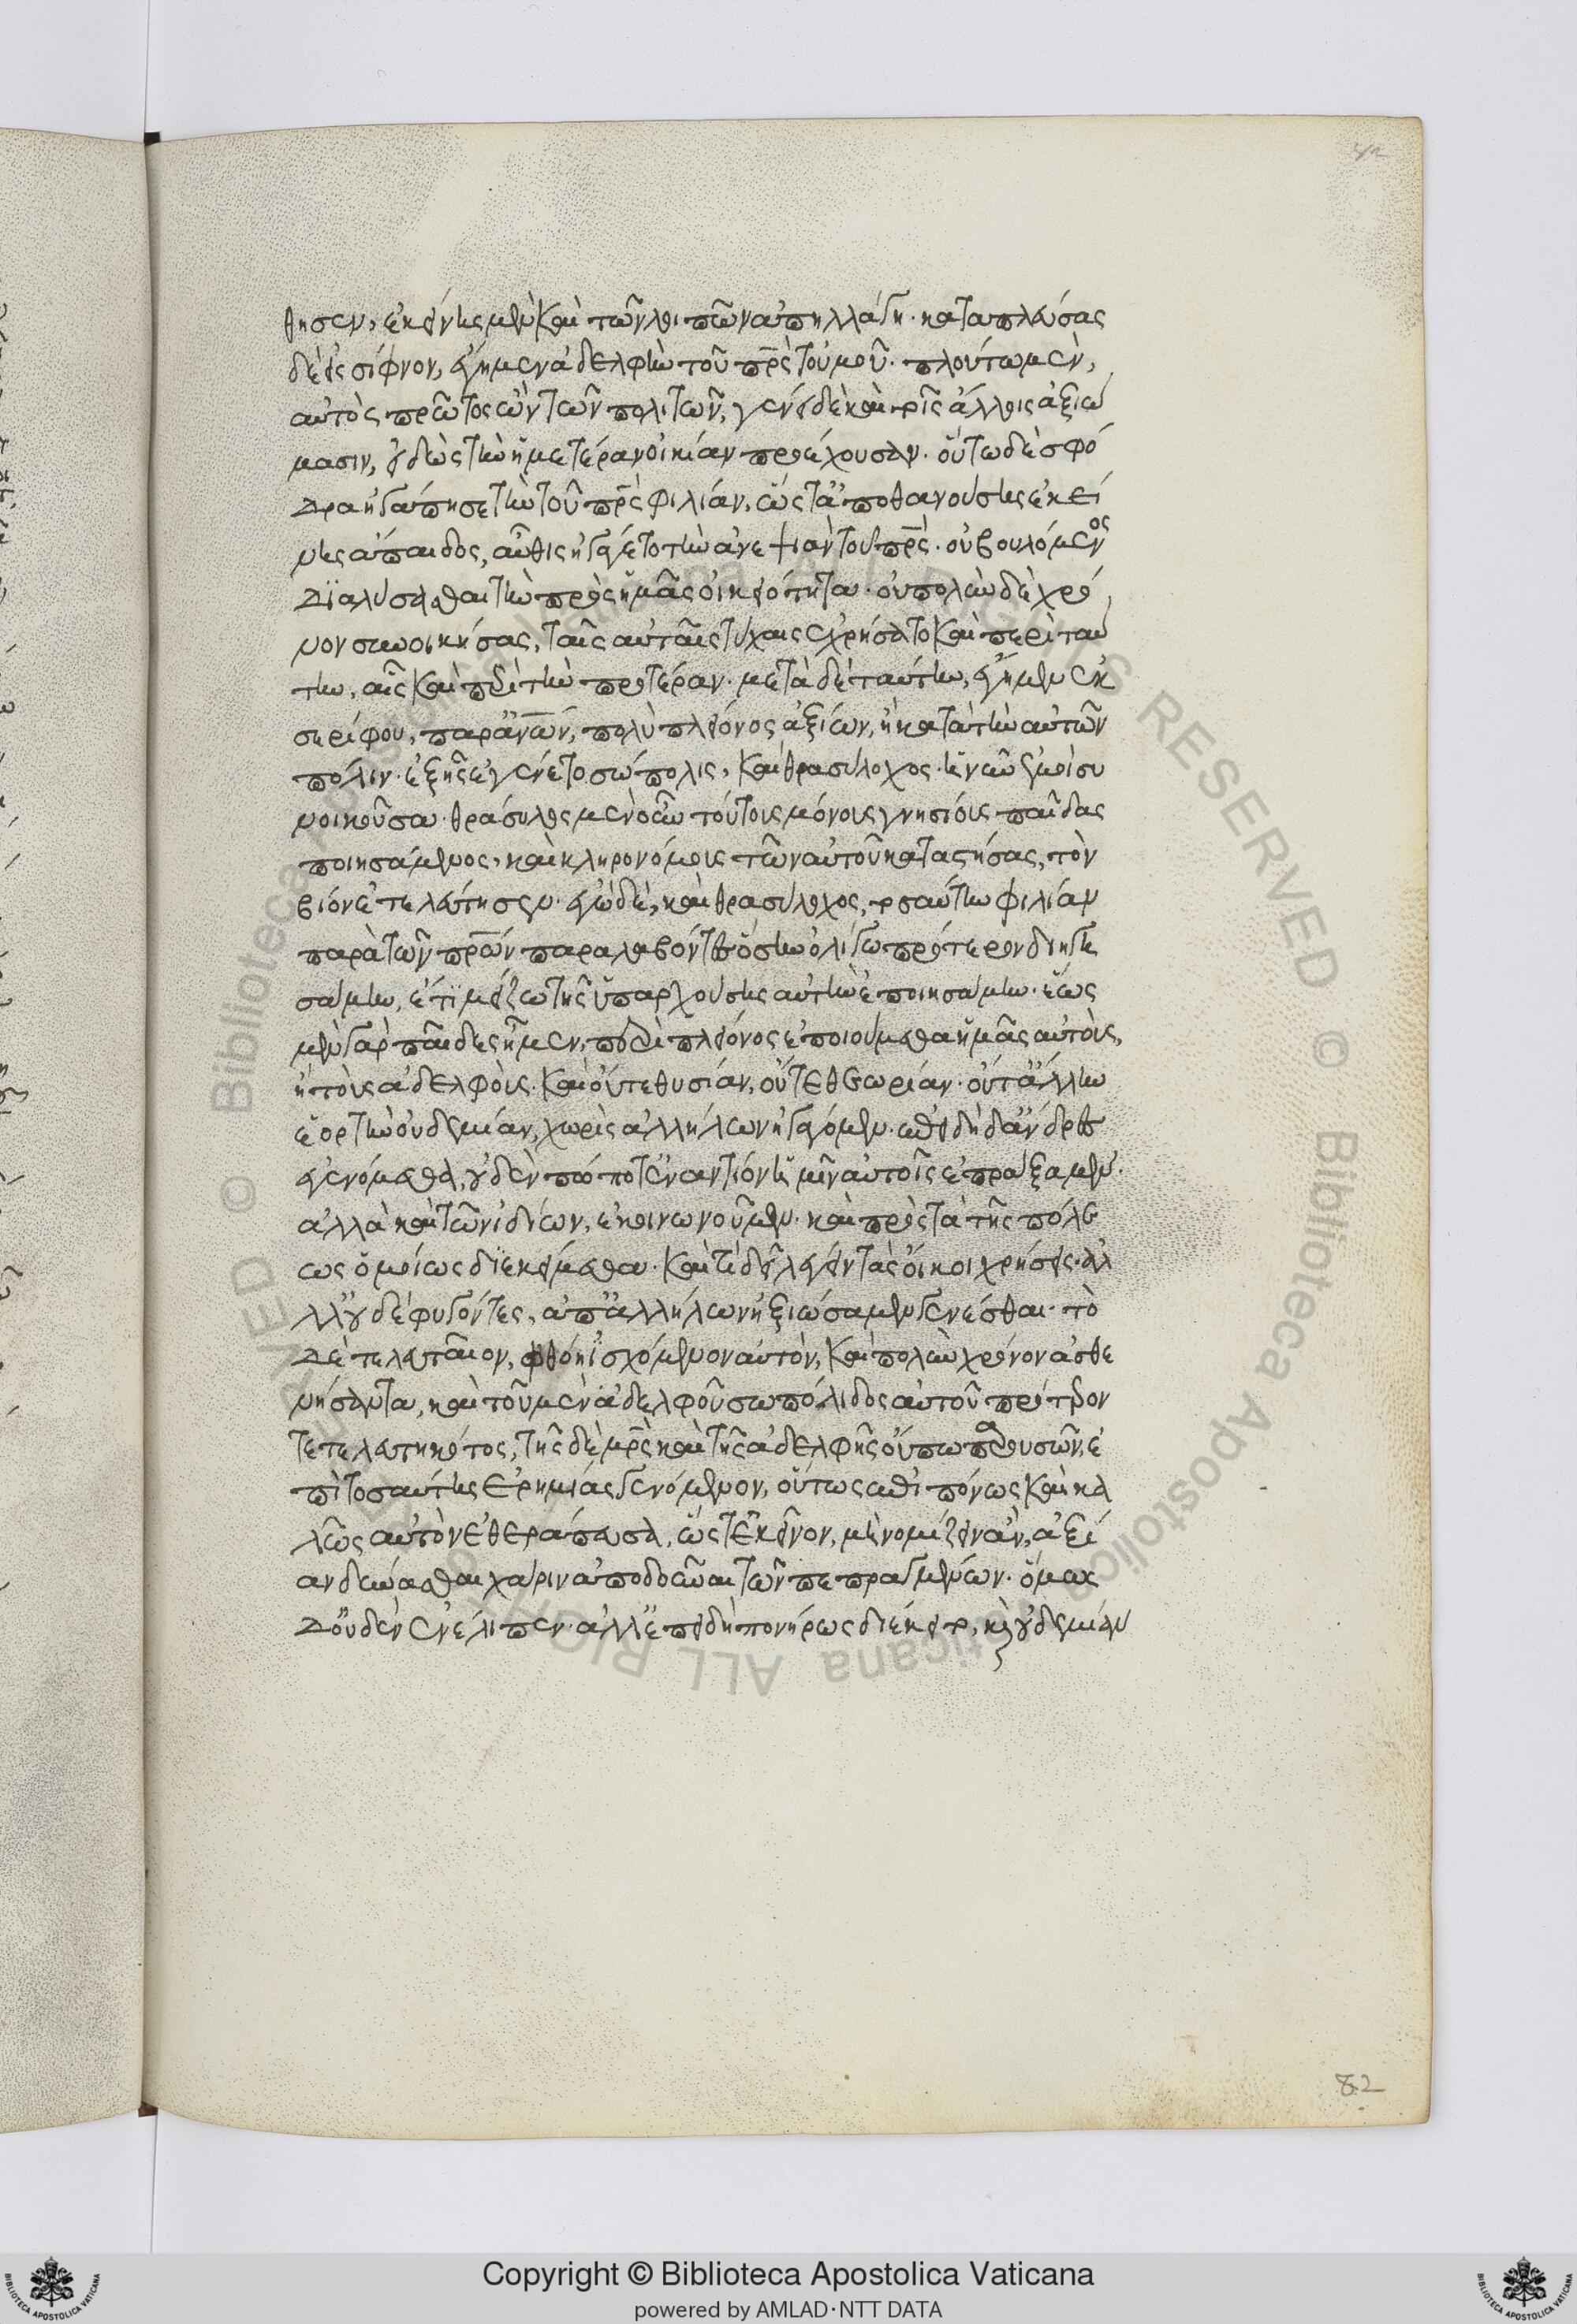 θησεν, ἐκείνης μὲν καὶ τῶν λοιπῶν ἀπηλλάγη. καταπλεύσας
δὲ εἰς σίφνον, ἔγημεν ἀδελφὴν τοῦ πρ̅ς τοὐμοῦ. πλούτω μὲν,
αὐτὸς πρῶτος ὢν τῶν πολιτῶν, γένει δὲ καὶ τοῖς ἄλλοις ἀξιώ
μασιν, εἰδὼς τὴν ἡμετέραν οἰκίαν προέχουσαν. οὕτω δὲ σφό
δρα ἠγάπησε τὴν τοῦ πρ̅ς φιλίαν, ὥστ' ἀποθανούσης ἐκεί
νης ἄπαιδος, αὖθις ἠγάγετο τὴν ἀνεψιὰν τοῦ πρ̅ς. οὐ βουλόμενος
διαλύσασθαι τὴν πρὸς ἡμᾶς οἰκειότητα. οὐ πολὺν δὲ χρό
νον συνοικήσας, ταῖς αὐταῖς τύχαις ἐχρήσατο καὶ περὶ ταύ
την, αἷς καὶ περὶ τὴν προτέραν. μετὰ δὲ ταύτην, ἔγημεν ἐκ
σερίφου, παρ' ἀν̅ων, πολὺ πλείονος ἀξίων, ἢ κατὰ τὴν αὐτῶν
πόλιν. ἐξ ἧς ἐγένετο σώπολις, καὶ θρασύλοχος. ἡ νῦν ἐμοὶ συ
νοικοῦσα. θράσυλος μὲν οὖν τούτους μόνους γνησίους παῖδας
ποιησάμενος, καὶ κληρονόμους τῶν αὐτοῦ καταστήσας, τὸν
βίον ἐτελεύτησεν. ἐγὼ δὲ, καὶ θρασύλοχος, τοσαύτην φιλίαν
παρὰ τῶν πρ̅ων παραλαβόντες ὅσην ὀλίγω πρότερον διηγη
σάμην, ἔτι μείζω τῆς ὑπαρχούσης αὐτὴν ἐποιησάμην. ἕως
μὲν γὰρ παῖδες ἦμεν, περὶ πλείονος ἐποιούμεθα ἡμᾶς αὐτοὺς,
ἢ τοὺς ἀδελφούς. καὶ οὔτε θυσίαν, οὔτε θεωρίαν. οὔτ' ἄλλην
ἑορτὴν οὐδεμίαν, χωρὶς ἀλλήλων ἠγάγομεν. ἐπειδὴ δ' ἄνδρες
ἐγενόμεθα, οὐδὲν πώποτ' ἐναντίον ἡμῖν αὐτοῖς ἐπράξαμεν.
ἀλλὰ καὶ τῶν ἰδίων, ἐκοινωνοῦμεν. καὶ πρὸς τὰ τῆς πόλε
ως ὁμοίως διεκείμεθα. καὶ τί δεῖ λέγειν τὰς οἴκοι χρήσεις. ἀλ
λ' οὐδὲ φυγόντες, ἀπ' ἀλλήλων ἠξιώσαμεν γενέσθαι. τὸ
δὲ τελευταῖον, φθόῃ ἰσχόμενον αὐτὸν, καὶ πολὺν χρόνον ἀσθε
νήσαντα, καὶ τοῦ μὲν ἀδελφοῦ σωπόλιδος αὐτοῦ πρότερον
τετελευτηκότος, τῆς δὲ μρ̅ς καὶ τῆς ἀδελφῆς οὔπω παρουσῶν, ἐ
πὶ τοσαύτης ἐρημίας γενόμενον, οὕτως ἐπιπόνως καὶ κα
λῶς αὐτὸν ἐθεράπευσα, ὥστ' ἐκεῖνον, μὴ νομίζειν ἂν, ἀξί
αν δύνασθαι χάριν ἀποδοῦναι τῶν πεπραγμένων. ὅμως
δ' οὐδὲν ἐνέλιπεν. ἀλλ' ἐπειδὴ πονήρως διέκειτο, καὶ οὐδεμίαν
82
Copyright © Biblioteca Apostolica Vaticana
powered by AMLAD·NTT DATA